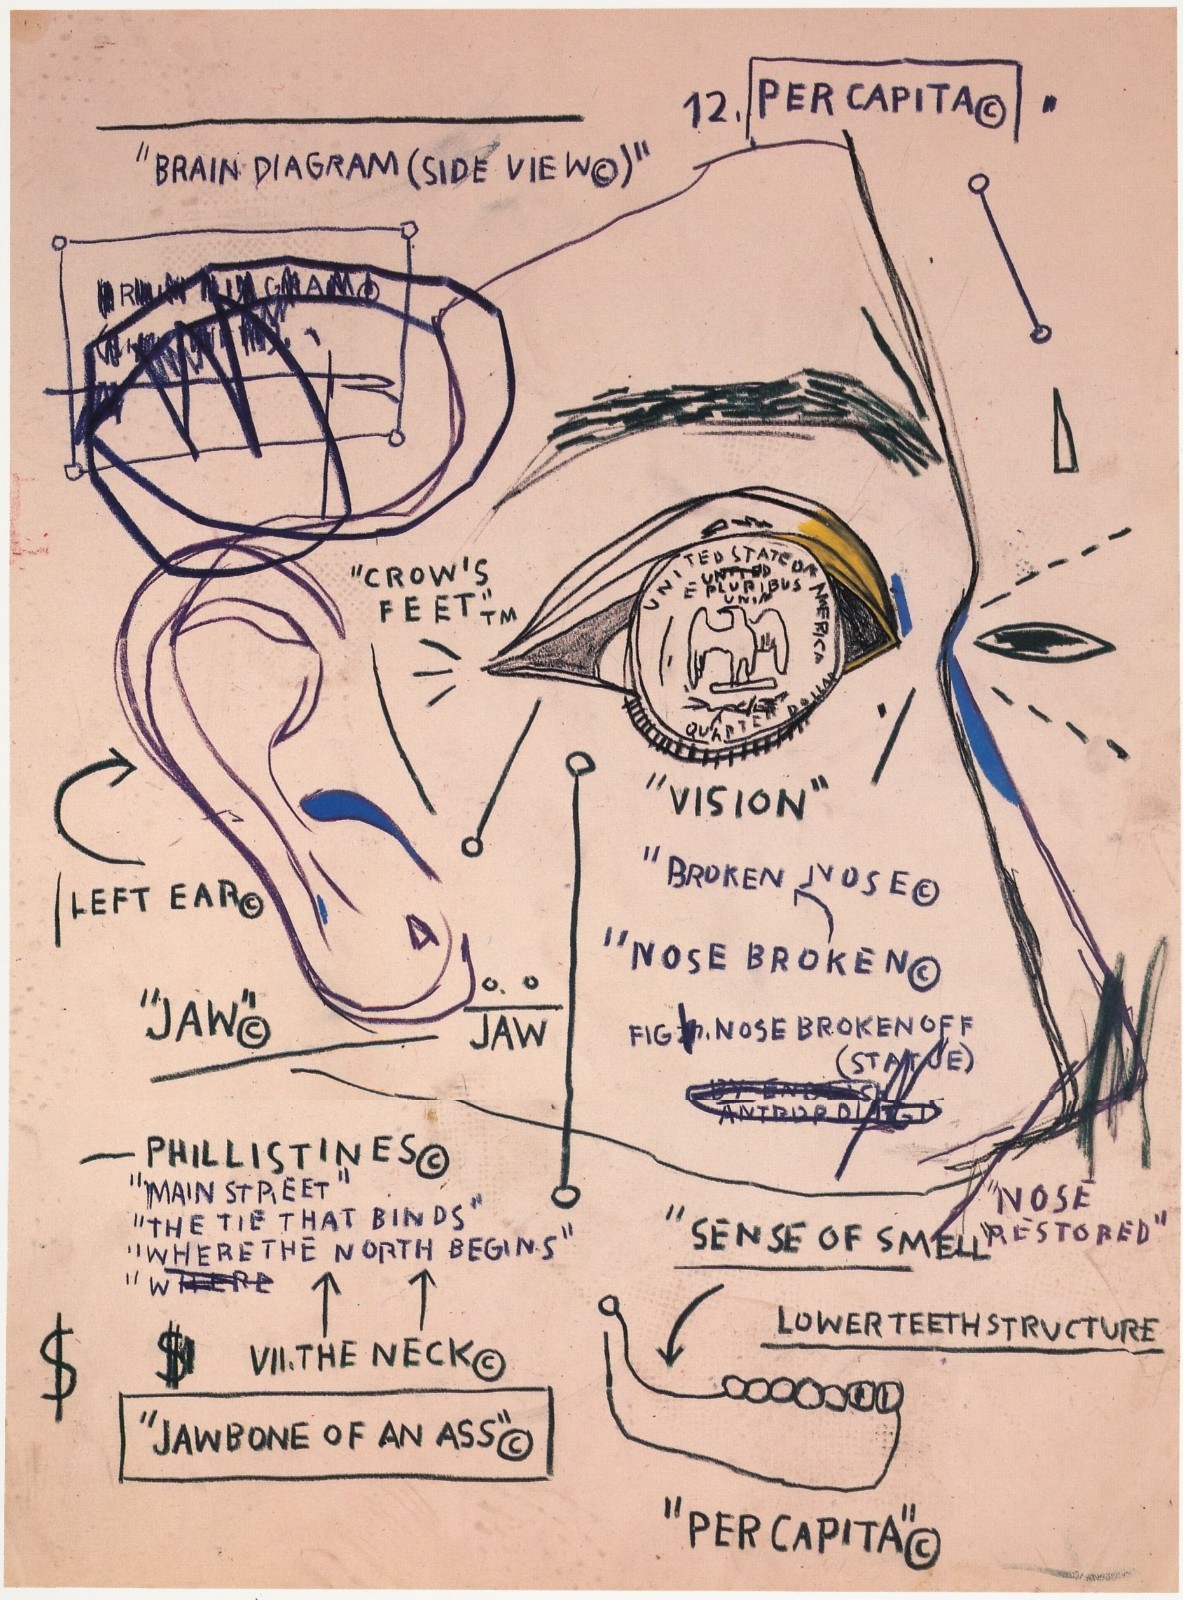 12. PER CAPITA©
"BRAIN DIAGRAM (SIDE VIEW©)"
"CROW'S
FEET"TM
UNITED STATE OF AMERICA
UNITED
E PLURIBUS
UNUM
QUARTER DOLLAR
"VISION"
"BROKEN NOSE©
LEFT EAR©
"NOSE BROKEN©
"JAW"©
JAW
FIG. NOSE BROKEN OFF
(STATUE)
PHILLISTINES©
"MAIN STREET"
"THE TIE THAT BINDS"
"WHERE THE NORTH BEGINS"
"WHERE
"NOSE
RESTORED"
"SENSE OF SMELL"
LOWER TEETH STRUCTURE
$ $ VII. THE NECK©
"JAWBONE OF AN ASS"©
"PER CAPITA"©